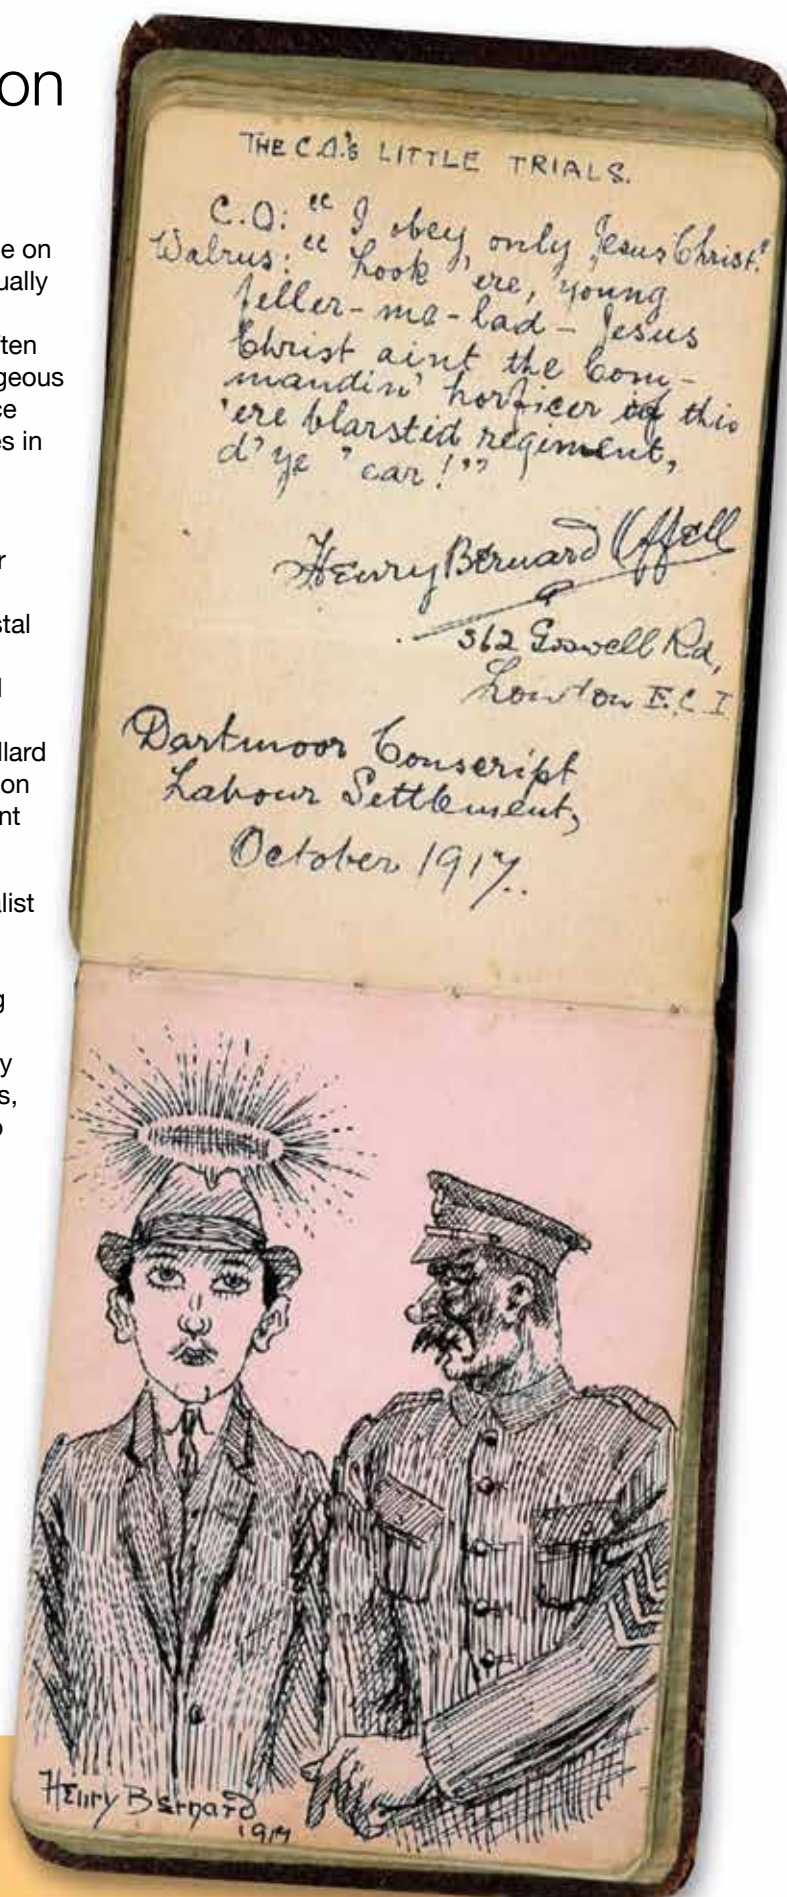 on
e on
ually
ten
geous
ce
es in
r
stal
l
llard
on
nt
list
g
y
s,
o
THE C.O.'s LITTLE TRIALS.
C.O: "I obey only Jesus Christ."
Walrus: "Look 'ere, young
feller-ma-lad - Jesus
Christ aint the Com-
mandin' horficer of this
'ere blarsted regiment,
d'ye 'ear!"
Henry Bernard Offell
362 Goswell Rd,
London E.C.I
Dartmoor Conscript
Labour Settlement,
October 1917.
Henry Bernard
1917